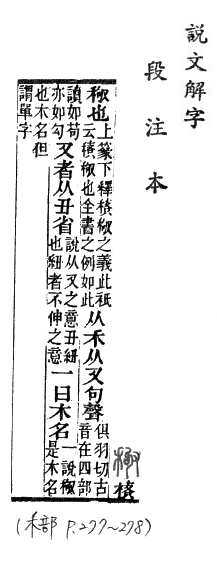 説文解字
段注本
也上篆下釋之義此祇云也全書之例如此从禾从又句聲俱羽切古音在四部
讀如苟亦如勾又者从丑省說从又之意丑紐也紐者不伸之意一曰木名一說是木名
也木名但謂單字
(禾部 P.277~278)